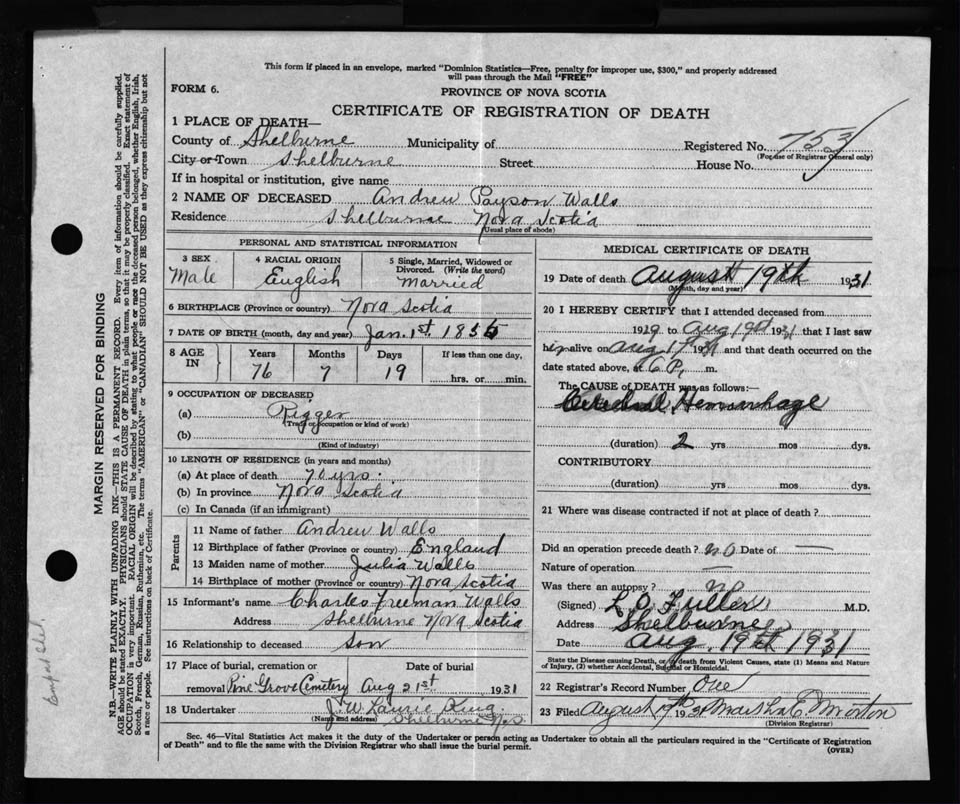 This form if placed in an envelope, marked "Dominion Statistics—Free, penalty for improper use, $300," and properly addressed
will pass through the Mail "FREE"
FORM 6.
PROVINCE OF NOVA SCOTIA
CERTIFICATE OF REGISTRATION OF DEATH
1 PLACE OF DEATH—
County of Shelburne Municipality of Registered No. 753
(For use of Registrar General only)
City or Town Shelburne Street House No.
If in hospital or institution, give name
2 NAME OF DECEASED Andrew Payson Walls
Residence Shelburne Nova Scotia
(Usual place of abode)
PERSONAL AND STATISTICAL INFORMATION
3 SEX
Male
4 RACIAL ORIGIN
English
5 Single, Married, Widowed or
Divorced. (Write the word)
Married
6 BIRTHPLACE (Province or country) Nova Scotia
7 DATE OF BIRTH (month, day and year) Jan. 1st. 1855
8 AGE IN
Years Months Days If less than one day,
76 7 19 hrs. or min.
9 OCCUPATION OF DECEASED
(a) Rigger
(Trade or occupation or kind of work)
(b)
(Kind of industry)
10 LENGTH OF RESIDENCE (in years and months)
(a) At place of death 76 yrs.
(b) In province Nova Scotia
(c) In Canada (if an immigrant)
Parents
11 Name of father Andrew Walls
12 Birthplace of father (Province or country) England
13 Maiden name of mother Julia Walls
14 Birthplace of mother (Province or country) Nova Scotia
15 Informant's name Charles Freeman Walls
Address Shelburne Nova Scotia
16 Relationship to deceased Son
17 Place of burial, cremation or Date of burial
removal Pine Grove Cemetery Aug 21st. 1931
18 Undertaker J. W. Laurie King
(Name and address) Shelburne N.S.
MEDICAL CERTIFICATE OF DEATH
19 Date of death August 19th 1931
(Month, day and year)
20 I HEREBY CERTIFY that I attended deceased from
1929 to Aug 19th 1931 that I last saw
him alive on Aug 17 1931 and that death occurred on the
date stated above, at 6 P. m.
The CAUSE OF DEATH was as follows:—
Cerebral Hemorrhage
(duration) 2 yrs mos dys.
CONTRIBUTORY
(duration) yrs mos dys.
21 Where was disease contracted if not at place of death?
Did an operation precede death? no Date of —
Nature of operation —
Was there an autopsy? no
(Signed) L. O. Fuller M.D.
Address Shelburne
Date Aug. 19th 1931
State the Disease causing Death, or if death from Violent Causes, state (1) Means and Nature
of Injury, (2) whether Accidental, Suicidal or Homicidal.
22 Registrar's Record Number One
23 Filed August 19th 1931 Marsha E. Morton
Sec. 46—Vital Statistics Act makes it the duty of the Undertaker or person acting as Undertaker to obtain all the particulars required in the "Certificate of Registration
of Death" and to file the same with the Division Registrar who shall issue the burial permit.
(OVER)
MARGIN RESERVED FOR BINDING
N.B.—WRITE PLAINLY WITH UNFADING INK—THIS IS A PERMANENT RECORD. Every item of information should be carefully supplied.
AGE should be stated EXACTLY. PHYSICIANS should STATE CAUSE OF DEATH in plain terms, so that it may be properly classified. Exact statement of
OCCUPATION is very important. RACIAL ORIGIN will be described by stating to what people or race the deceased person belonged, whether English, Irish,
Scotch, French, German, Russian, Ruthenian, etc. The terms "AMERICAN" or "CANADIAN" SHOULD NOT BE USED as they express citizenship but not
a race or people. See instructions on back of Certificate.